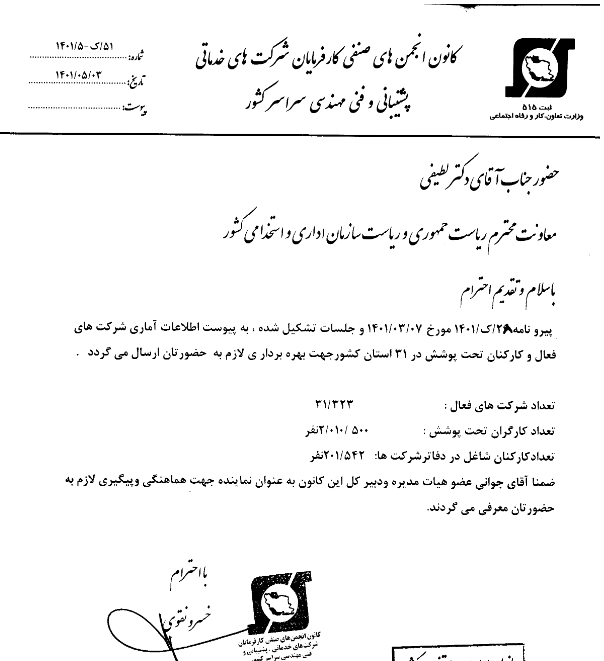 کانون انجمن های صنفی کارفرمایان شرکت های خدماتی
پشتیبانی و فنی مهندسی سراسر کشور
ثبت ۵۱۵
وزارت تعاون، کار و رفاه اجتماعی
شماره: ۵۱/ک-۱۴۰۱/۵
تاریخ: ۱۴۰۱/۰۵/۰۳
پیوست:
حضور جناب آقای دکتر لطیفی
معاونت محترم ریاست جمهوری و ریاست سازمان اداری و استخدامی کشور
باسلام و تقدیم احترام
پیرو نامه ۲۸/ک/۱۴۰۱ مورخ ۱۴۰۱/۰۳/۰۷ و جلسات تشکیل شده ، به پیوست اطلاعات آماری شرکت های
فعال و کارکنان تحت پوشش در ۳۱ استان کشورجهت بهره بردار ی لازم به حضورتان ارسال می گردد .
تعداد شرکت های فعال : ۳۱/۳۲۳
تعداد کارگران تحت پوشش : ۲/۰۱۰/۵۰۰نفر
تعدادکارکنان شاغل در دفاترشرکت ها: ۲۰۱/۵۴۲نفر
ضمنا آقای جوانی عضو هیات مدیره ودبیر کل این کانون به عنوان نماینده جهت هماهنگی وپیگیری لازم به
حضورتان معرفی می گردند.
با احترام
خسرو نقوی
کانون انجمن‌های صنفی کارفرمایان
شرکت‌های خدماتی ، پشتیبانی و
فنی مهندسی سراسر کشور